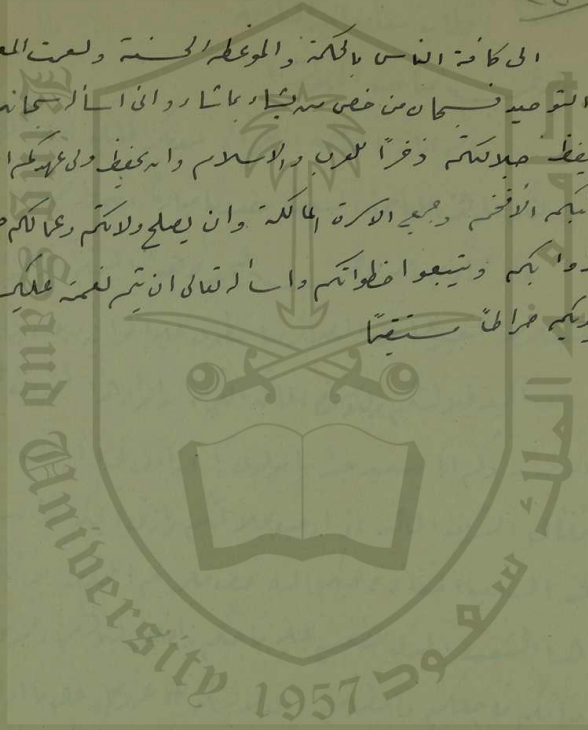 الى كافة الناس بالحكمة والموعظة الحسنة و
التوحيد فسبحان من خص من يشاء بما شاء وانى اسأله سبحانه
يحفظ جلالتكم ذخرًا للعرب والاسلام وان يحفظ ولى عهدكم ا
الافخم وجميع الاسرة المالكة وان يصلح ولاتكم وعمالكم
بكم ويتبعوا خطواتكم واسأله تعالى ان يتم نعمته عليكم
صراطاً مستقيما
جامعة الملك سعود
King Saud University 1957